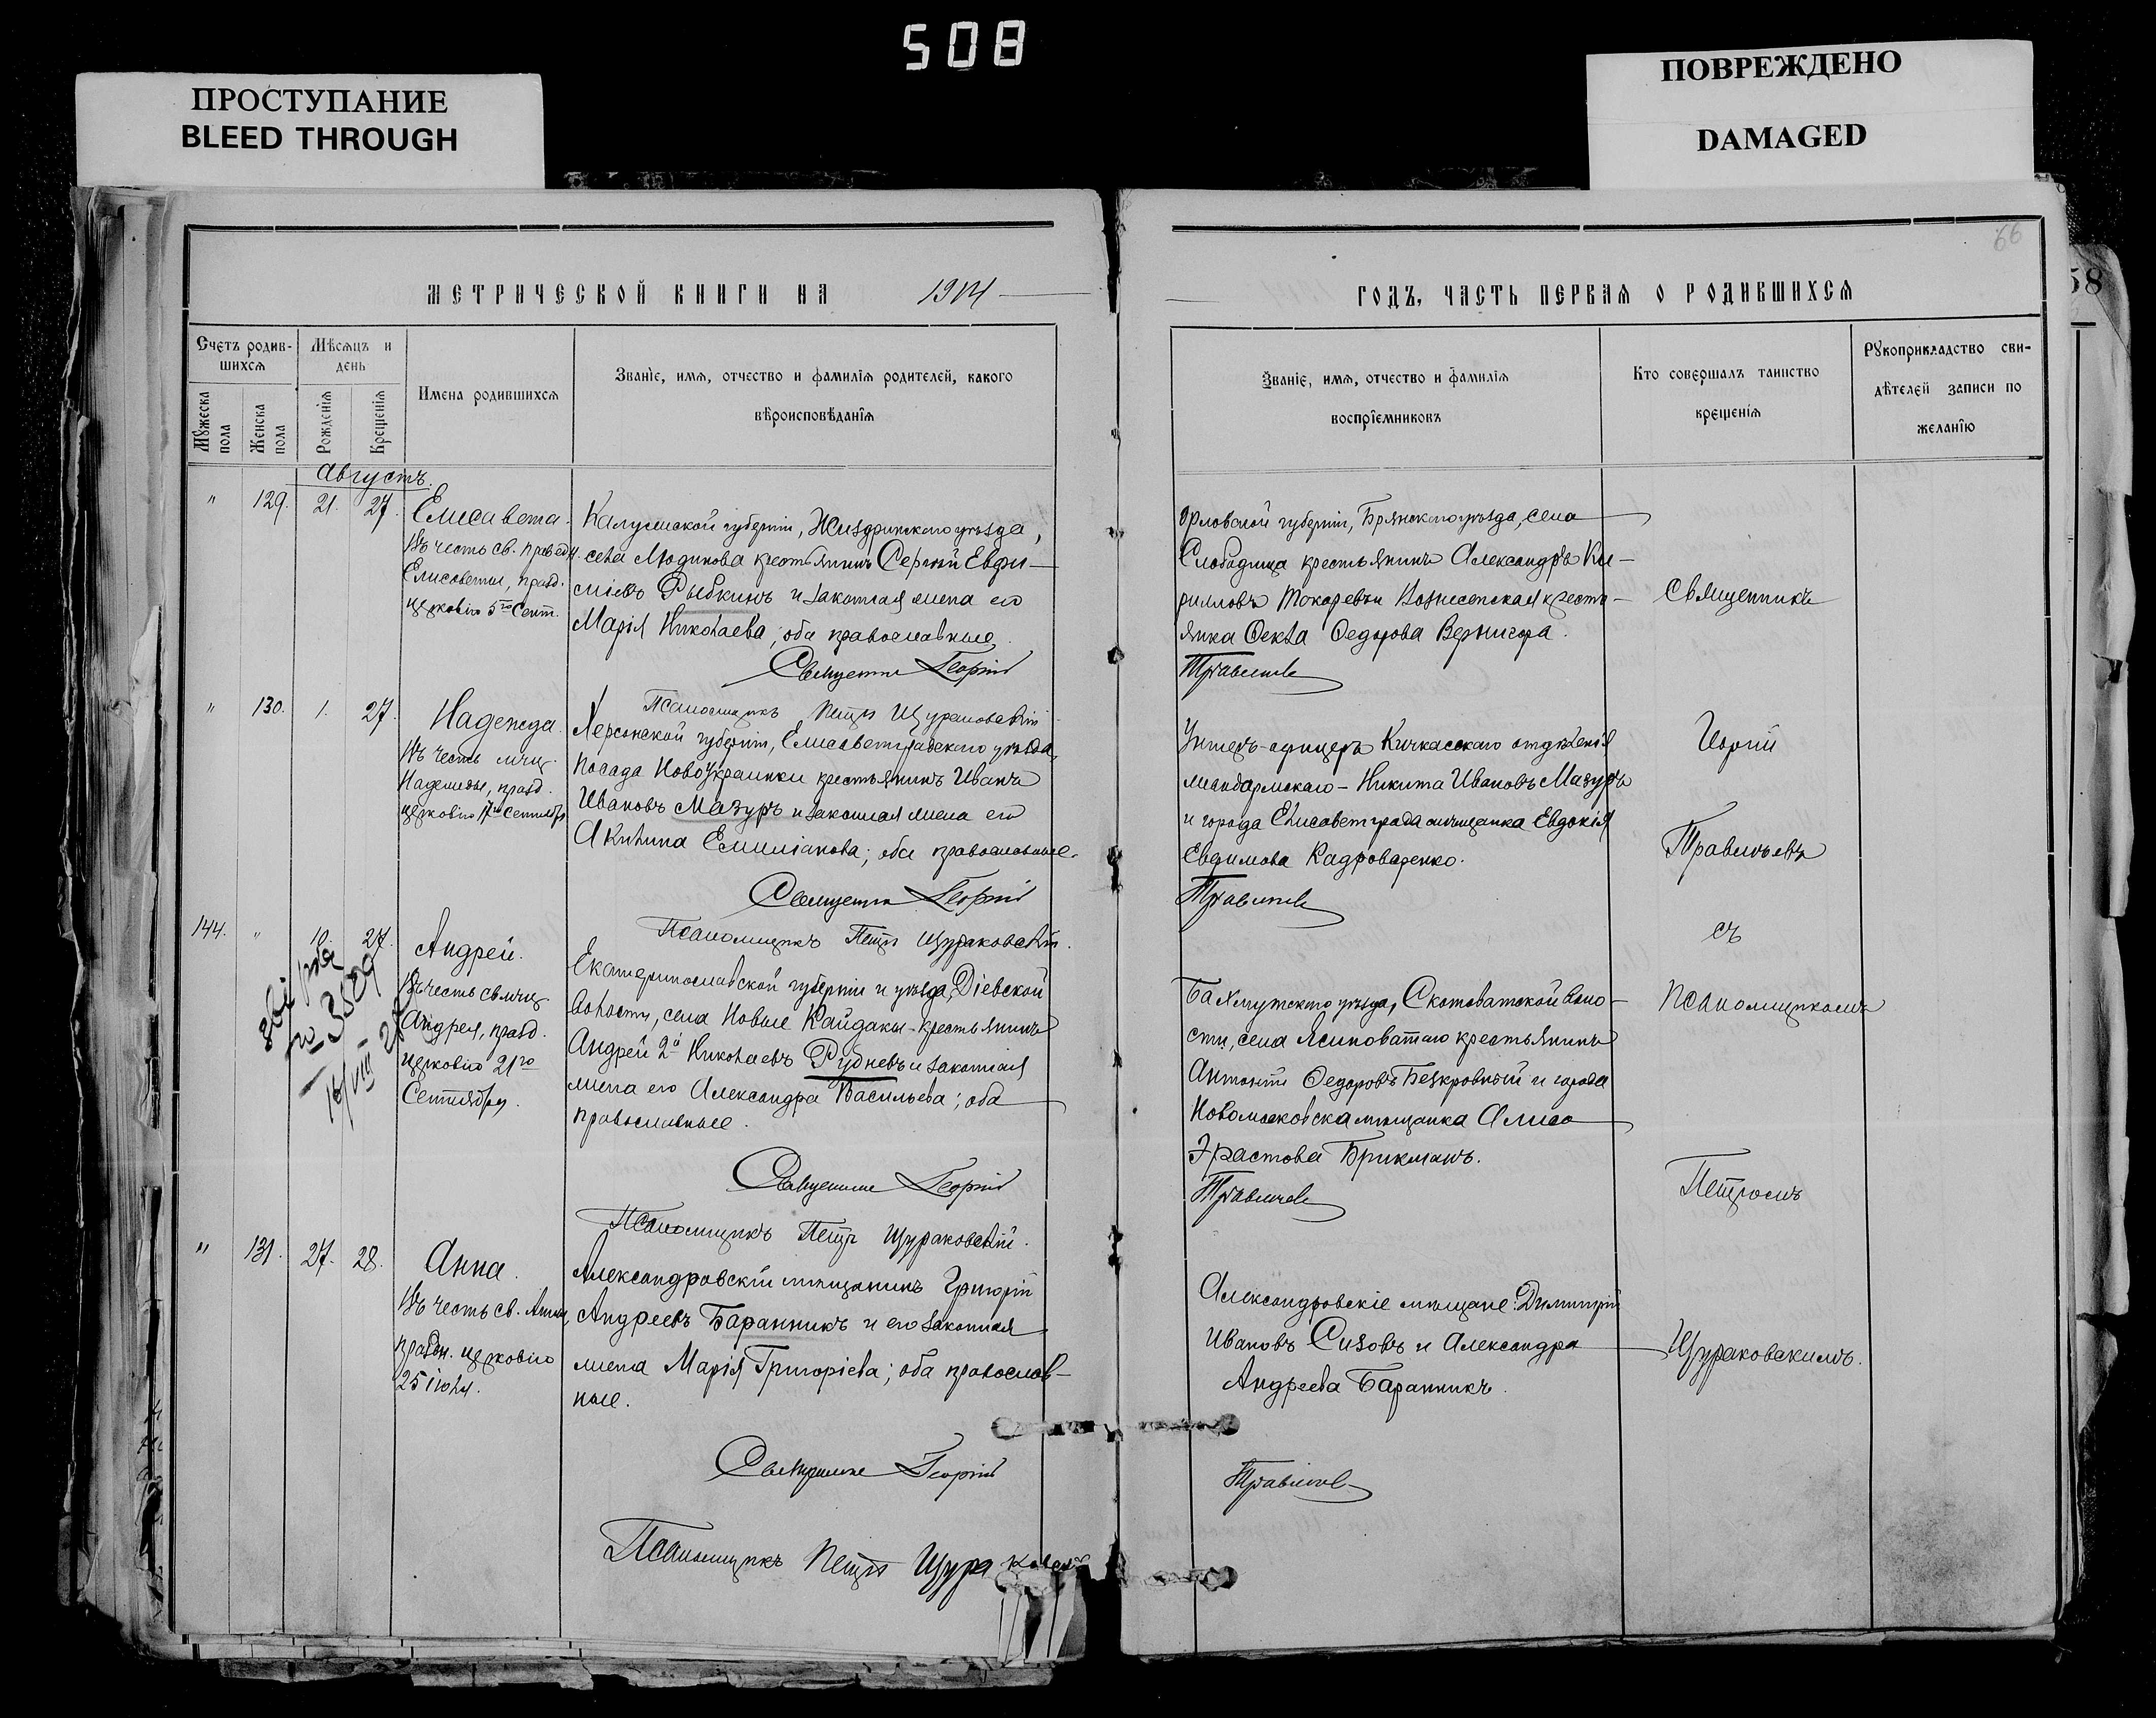 508
ПРОСТУПАНИЕ
BLEED THROUGH
ПОВРЕЖДЕНО
DAMAGED
66
58
МЕТРИЧЕСКОЙ КНИГИ НА 1914
Счетъ родив-
шихся
Мужеска пола
Женска пола
Мѣсяцъ и
день
Рожденія
Крещенія
Имена родившихся
Званіе, имя, отчество и фамилія родителей, какого
вѣроисповѣданія
Августъ.
" 129. 21. 27.
Елисавета.
Въ честь св. правед.
Елисаветы, празд.
церковію 5го Сент.
Калужской губерніи, Жиздринскаго уѣзда,
села Людинова крестьянинъ Сергѣй Евфи-
міевъ Рыбкинъ и законная жена его
Марія Николаева; оба православные.
Священникъ Георгій
Псаломщикъ Петръ Щураковскій
" 130. 1. 27.
Надежда.
Въ честь мчц.
Надежды, празд.
церковію 17го Сентября
Херсонской губерніи, Елисаветградскаго уѣзда,
посада Новоукраинки крестьянинъ Иванъ
Ивановъ Мазуръ и законная жена его
Акилина Емиліанова; оба православные.
Священникъ Георгій
Псаломщикъ Петръ Щураковскій.
144. " 10. 27.
Андрей.
Въ честь св. мчц.
Андрея, празд.
церковію 21го
Сентября.
№ 3889
Екатеринославской губерніи и уѣзда, Діевской
волости, села Новые Кайдаки крестьянинъ
Андрей 2й Николаевъ Рудневъ и законная
жена его Александра Васильева; оба
православные.
Священникъ Георгій
Псаломщикъ Петръ Щураковскій.
" 131. 27. 28.
Анна.
Въ честь св. Анны,
праздн. церковію
25 іюля.
Александровскій мѣщанинъ Григорій
Андреевъ Баранникъ и его законная
жена Марія Григоріева; оба православ-
ные.
Священникъ Георгій
Псаломщикъ Петръ Щураковскій
ГОДЪ, ЧАСТЬ ПЕРВАЯ О РОДИВШИХСЯ
Званіе, имя, отчество и фамилія
воспріемниковъ
Кто совершалъ таинство
крещенія
Рукоприкладство сви-
дѣтелей записи по
желанію
Орловской губерніи, Брянскаго уѣзда, села
Слободища крестьянинъ Александръ Ки-
рилловъ Токаревъ и Вознесенская кресть-
янка Ѳекла Ѳедорова Вернигора.
Травинъ
Унтеръ-офицеръ Кичкасскаго отдѣленія
жандармскаго - Никита Ивановъ Мазуръ
и города Елисаветграда мѣщанка Евдокія
Евфимова
Травинъ
Бахмутскаго уѣзда, Скотоватской воло-
сти, села Ясиноватаго крестьянинъ
Антоній Ѳедоровъ Безкровный и города
Новомосковска мѣщанка
Эрастова Брикманъ.
Александровскіе мѣщане: Димитрій
Ивановъ Сизовъ и Александра
Андреева Баранникъ.
Священникъ
съ
Псаломщикомъ
Петромъ
Щураковскимъ.